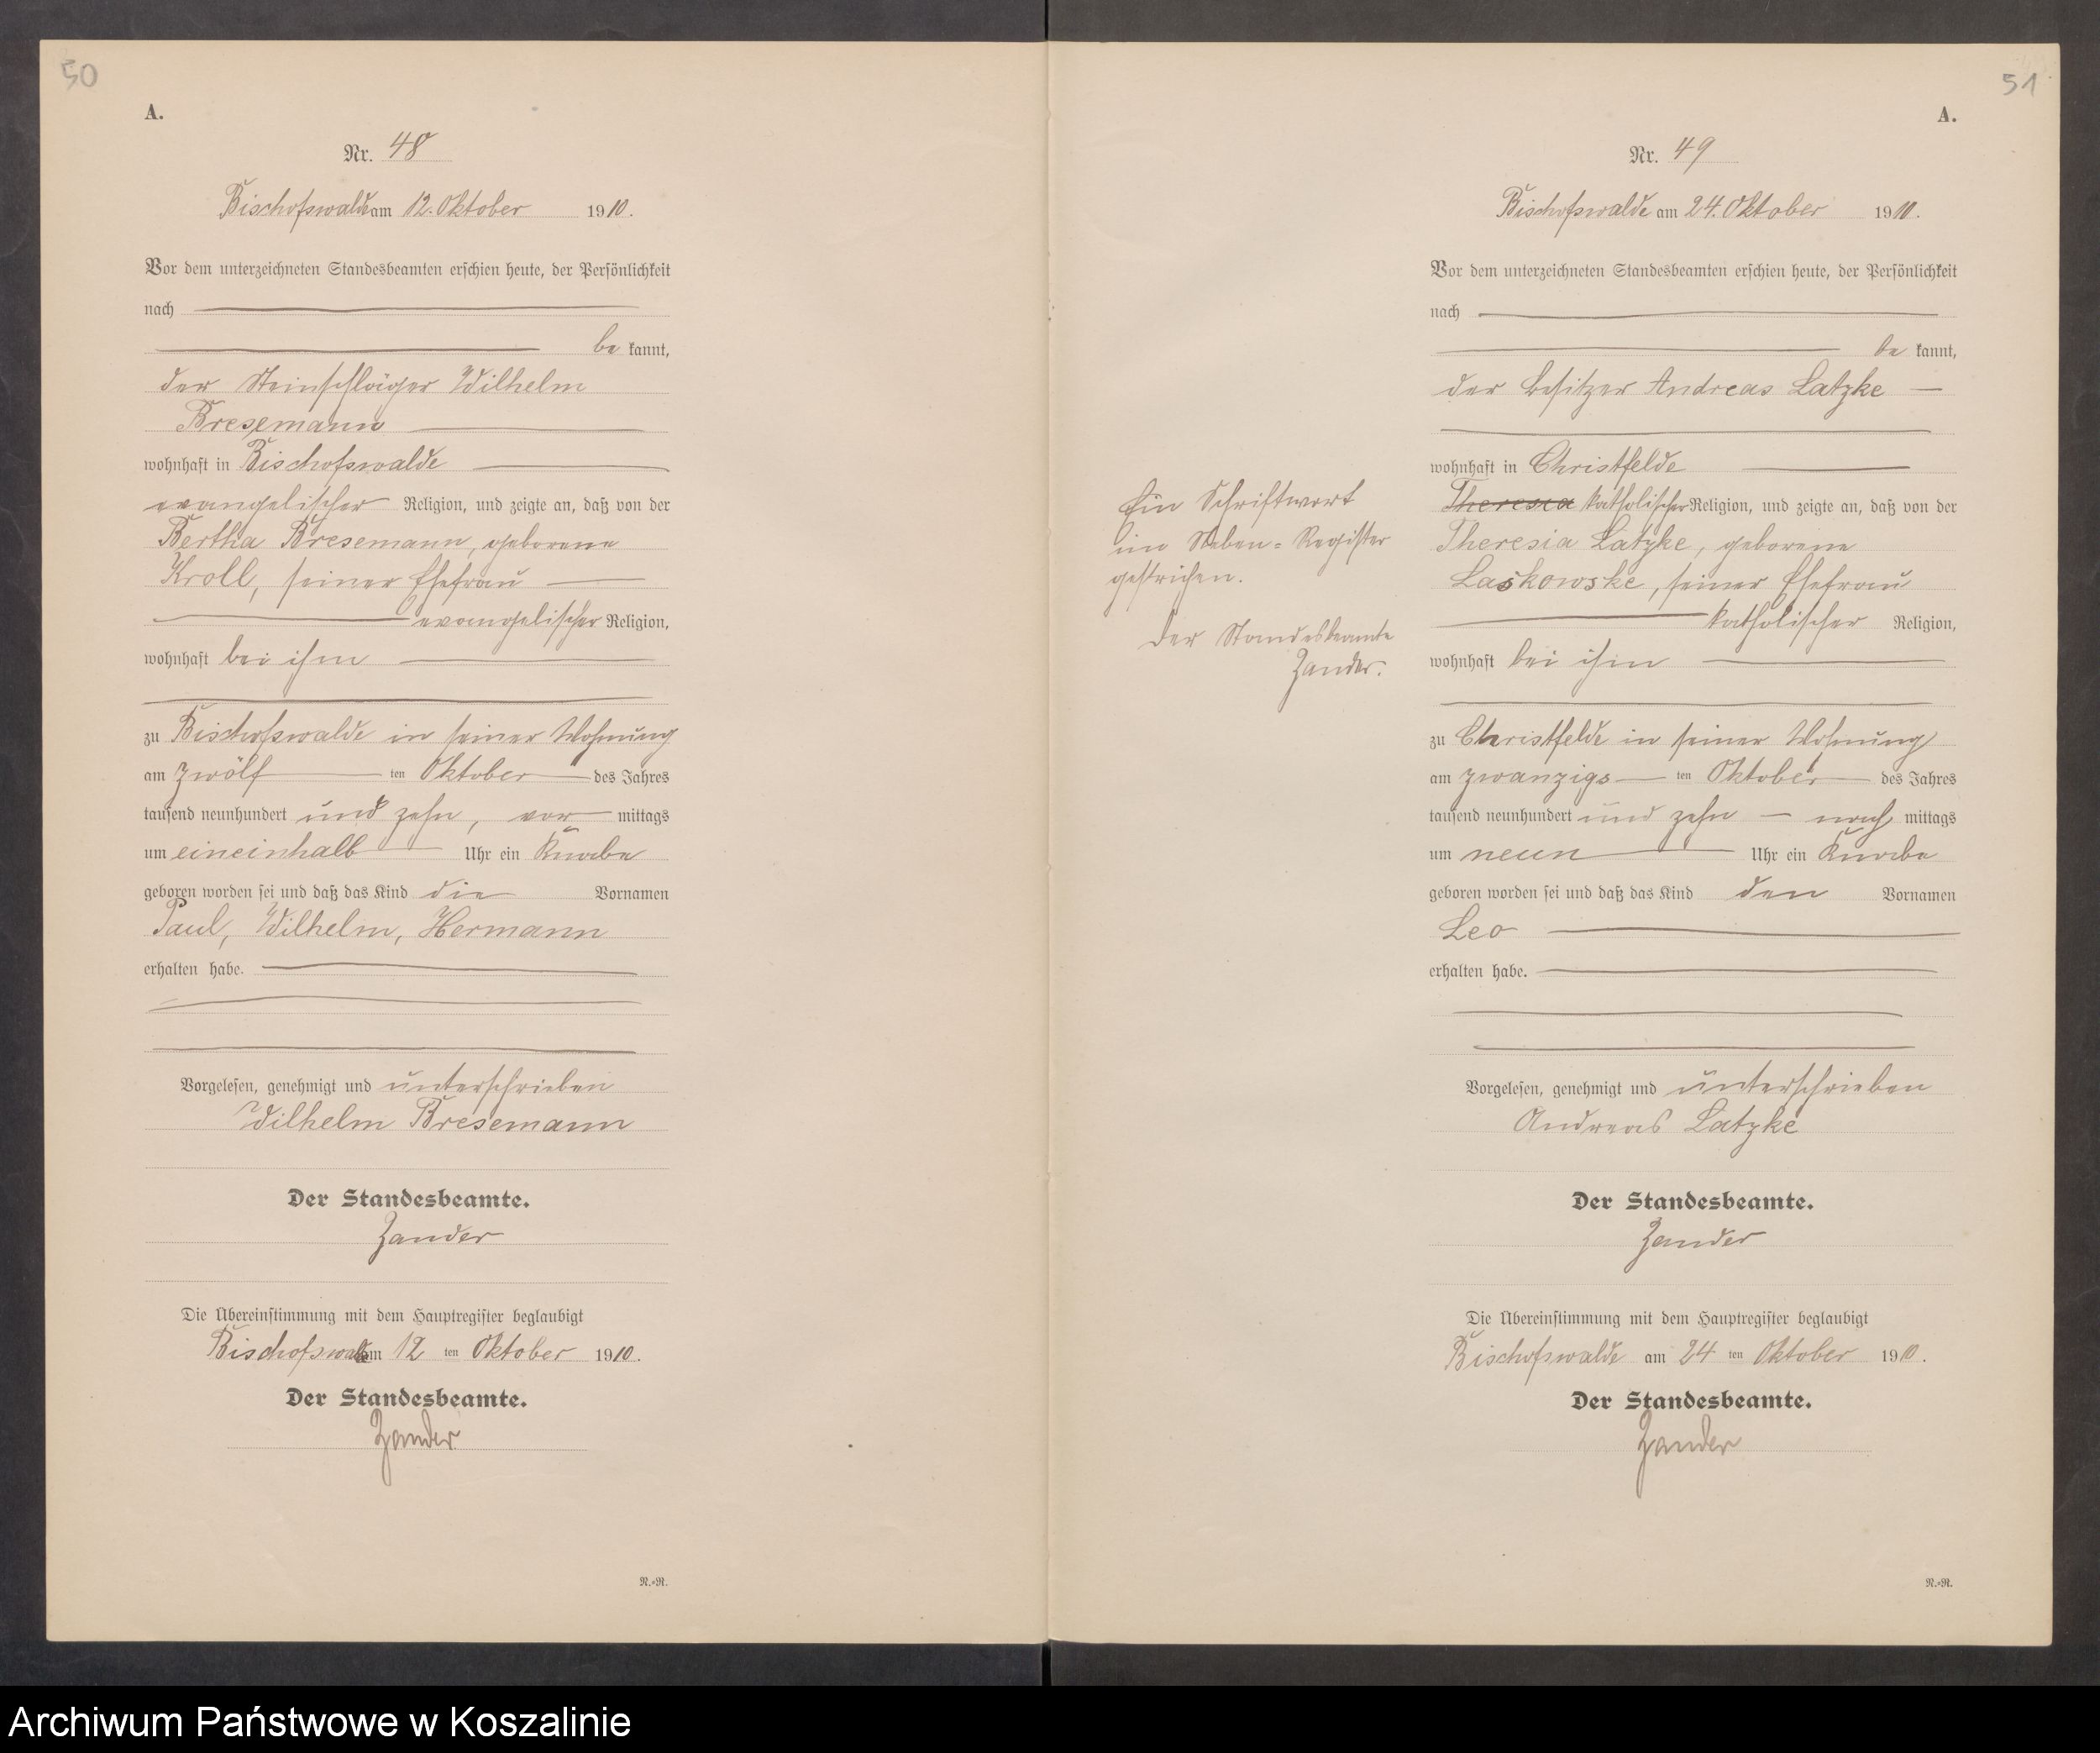 50
A.
Nr. 48
Bischofswalde am 12. Oktober 1910.
Vor dem unterzeichneten Standesbeamten erschien heute, der Persönlichkeit
nach
be kannt,
der Steinschläger Wilhelm
Bresemann
wohnhaft in Bischofswalde
evangelischer Religion, und zeigte an, daß von der
Bertha Bresemann, geborene
Kroll, seiner Ehefrau
evangelischer Religion,
wohnhaft bei ihm
zu Bischofswalde in seiner Wohnung
am zwölf ten Oktober des Jahres
tausend neunhundert und zehn, vor mittags
um eineinhalb Uhr ein Knabe
geboren worden sei und daß das Kind die Vornamen
Paul, Wilhelm, Hermann
erhalten habe.
Vorgelesen, genehmigt und unterschrieben
Wilhelm Bresemann
Der Standesbeamte.
Zander
Die Übereinstimmung mit dem Hauptregister beglaubigt
Bischofswalde am 12 ten Oktober 1910.
Der Standesbeamte.
Zander
N.-R.
51
A.
Nr. 49
Bischofswalde am 24. Oktober 1910.
Vor dem unterzeichneten Standesbeamten erschien heute, der Persönlichkeit
nach
be kannt,
der Besitzer Andreas Latzke
wohnhaft in Christfelde
Theresia katholischer Religion, und zeigte an, daß von der
Theresia Latzke, geborene
Laskowske, seiner Ehefrau
katholischer Religion,
wohnhaft bei ihm
zu Christfelde in seiner Wohnung
am zwanzigs ten Oktober des Jahres
tausend neunhundert und zehn nach mittags
um neun Uhr ein Knabe
geboren worden sei und daß das Kind den Vornamen
Leo
erhalten habe.
Vorgelesen, genehmigt und unterschrieben
Andreas Latzke
Der Standesbeamte.
Zander
Die Übereinstimmung mit dem Hauptregister beglaubigt
Bischofswalde am 24 ten Oktober 1910.
Der Standesbeamte.
Zander
N.-R.
Ein Schriftwort
im Neben-Register
gestrichen.
Der Standesbeamte
Zander.
Archiwum Państwowe w Koszalinie